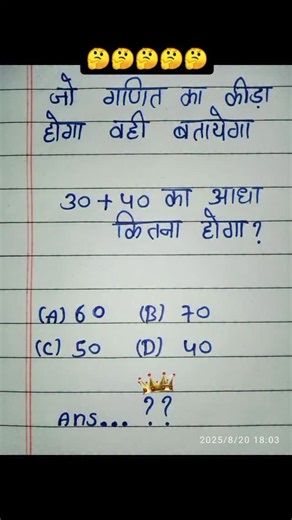 🤔🤔🤔🤔🤔
जो गणित का कीड़ा
होगा वही बतायेगा
30 + 40 का आधा
कितना होगा?
(A) 60 (B) 70
(C) 50 (D) 40
Ans... ??
2025/8/20 18:03